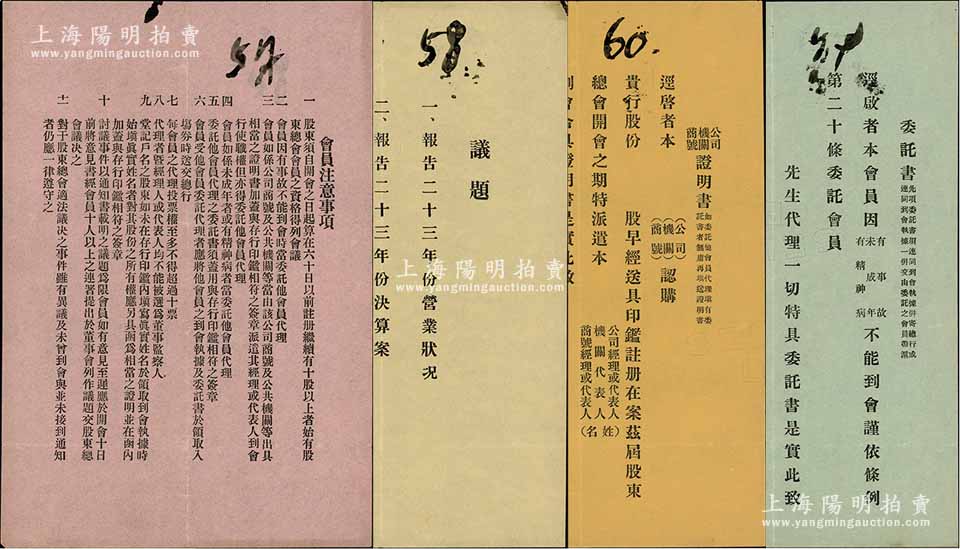 上海陽明拍賣
www.yangmingauction.com
60.
委託書
先項委託書須連同到會執據併寄總行或
連同到會執據一併交由委託之會員帶派
逕啟者本會員因
有事故
未成年
有精神病
不能到會謹依條例
第二十條委託會員
先生代理一切特具委託書是實此致
公司
機關
商號
證明書
如委託他會員代理填有委
託書者無庸再填送證明書
逕啓者本
(公司)
(機關)
(商號)
認購
貴行股份
股早經送具印鑑註册在案茲屆股東
總會開會之期特派遣本
公司經理或代表人
機關代表人
商號經理或代表人
(姓名)
到會會具證明書是實此致
議題
一、報告二十三年份營業狀况
二、報告二十三年份決算案
會員注意事項
一 股東須自開會之日起算在六十日以前註册繼續有十股以上者始有股
東總會會員之資格得列會議
二 會員因有事故不能到會時當委託他會員代理
三 會員如係公司商號及公共機關等當由該公司商號及公共機關等出具
相當之證明書加蓋與存行印鑑相符之簽章派這其經理或代表人到會
行使職權但亦得委託他會員代理
四 會員如係未成年者或有精神病者當委託他會員代理
五 委託他會員代理之委託書須蓋用與存行印鑑相符之簽章
六 會員受他會員委託代理者應將他會員之到會執據及委託書於領取入
場券時送交總行
七 每會員之代理投票權至多不得超過十票
八 代理者暨經理人或代表人均不能被選為董事監察人
九 堂記戶名之股東如未在存行印鑑內填寫眞實姓名於領取到會執據時
始填眞實姓名者對其股份之所有權應另具函爲相當之證明並在函內
加蓋與存行印鑑相符之簽章
十 討議事件以通知書載明之議題爲限會員如有意見至遲應於開會十日
前將意見書經會員十人以上之連署提出於董事會列作議題交股東總
會議決之
十一 對于股東總會適法議決之事件雖有異議及未曾到會與並未接到通知
者仍應一律遵守之
上海陽明拍賣
www.yangmingauction.com